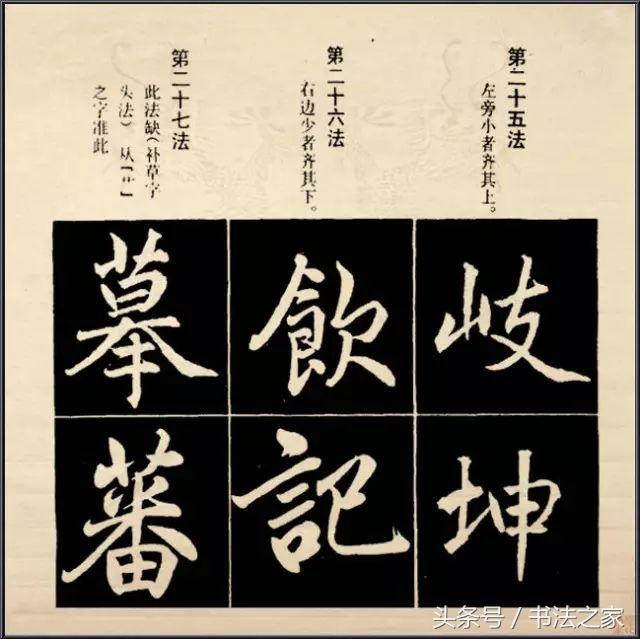 第二十五法
左旁小者齐其上。
岐
坤
第二十六法
右边少者齐其下。
飲
記
第二十七法
此法缺（补草字
头法）从【艹】
之字准此
摹
蕃
头条号 / 书法之家